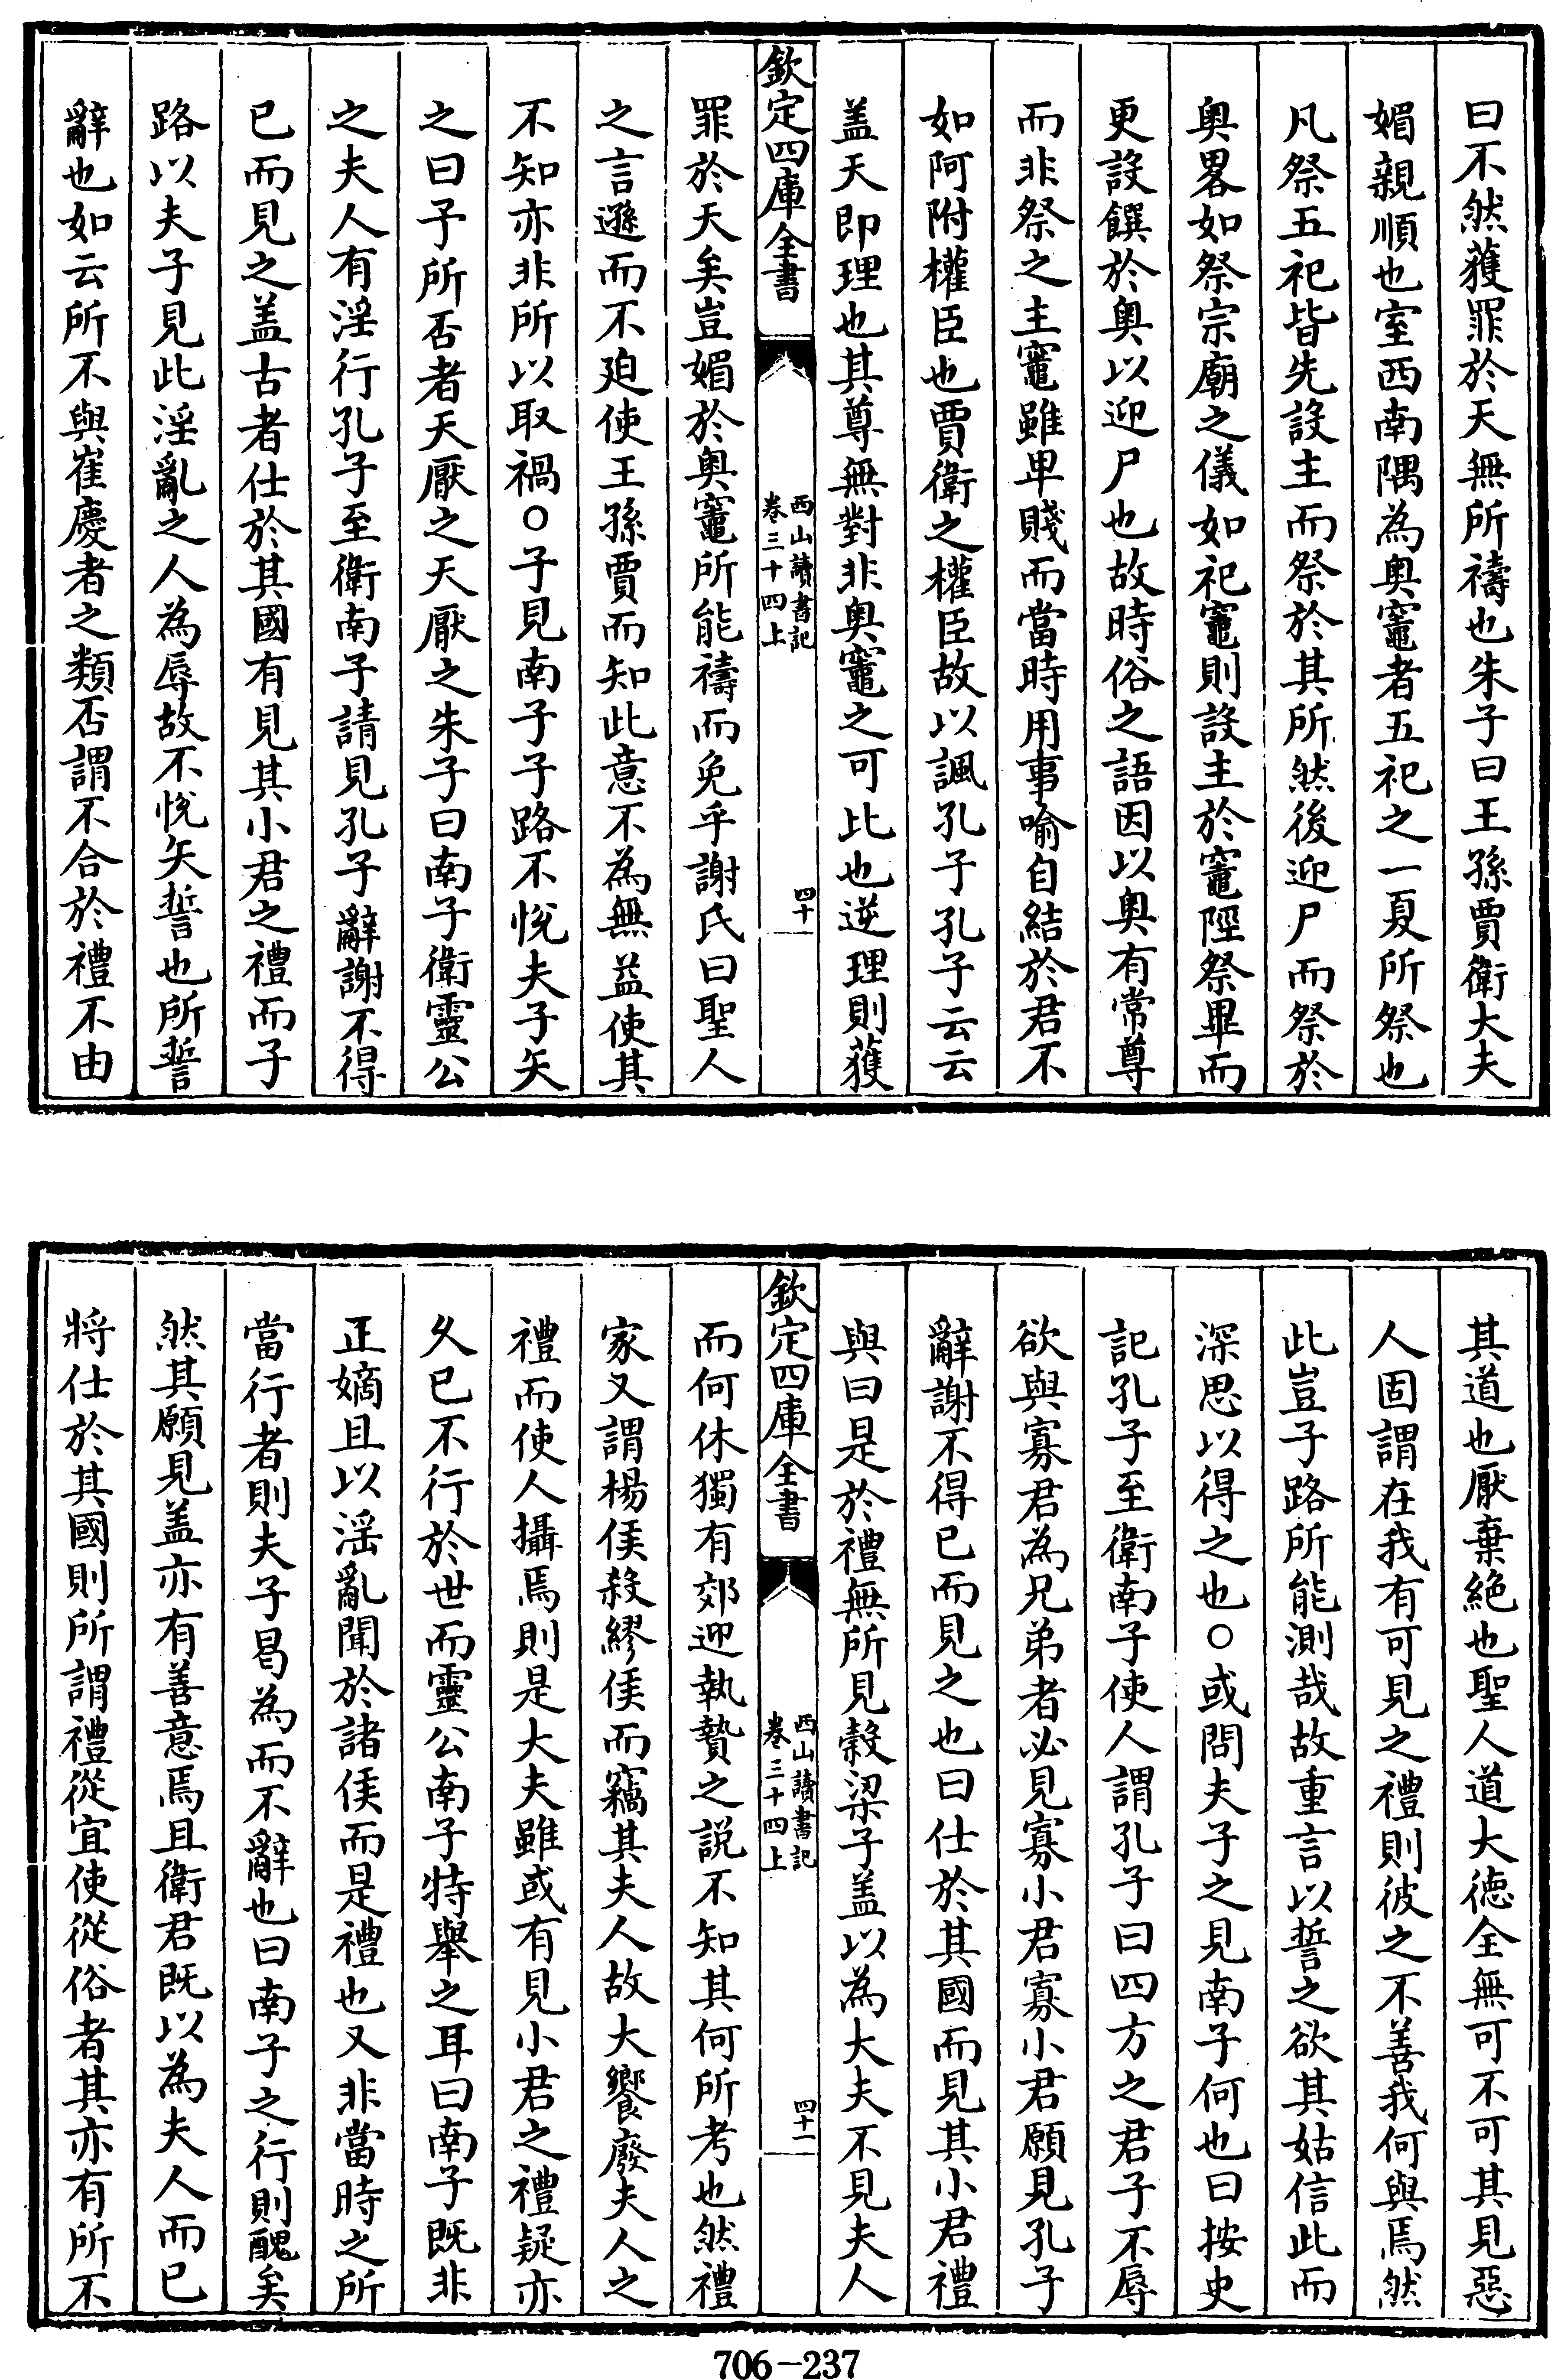 曰不然獲罪於天無所禱也朱子曰王孫賈衛大夫
媚親順也室西南隅為奧竈者五祀之一夏所祭也
凡祭五祀皆先設主而祭於其所然後迎尸而祭於
奧畧如祭宗廟之儀如祀竈則設主於竈陘祭畢而
更設饌於奧以迎尸也故時俗之語因以奧有常尊
而非祭之主竈雖卑賤而當時用事喻自結於君不
如阿附權臣也賈衛之權臣故以諷孔子孔子云云
盖天即理也其尊無對非奧竈之可比也逆理則獲
欽定四庫全書
西山讀書記
卷三十四上
四十
罪於天矣豈媚於奧竈所能禱而免乎謝氏曰聖人
之言遜而不廹使王孫賈而知此意不為無益使其
不知亦非所以取禍○子見南子子路不悅夫子矢
之曰予所否者天厭之天厭之朱子曰南子衛靈公
之夫人有淫行孔子至衛南子請見孔子辭謝不得
已而見之盖古者仕於其國有見其小君之禮而子
路以夫子見此淫亂之人為辱故不悅矢誓也所誓
辭也如云所不與崔慶者之類否謂不合於禮不由
其道也厭棄絶也聖人道大徳全無可不可其見惡
人固謂在我有可見之禮則彼之不善我何與焉然
此豈子路所能測哉故重言以誓之欲其姑信此而
深思以得之也○或問夫子之見南子何也曰按史
記孔子至衛南子使人謂孔子曰四方之君子不辱
欲與寡君為兄弟者必見寡小君寡小君願見孔子
辭謝不得已而見之也曰仕於其國而見其小君禮
與曰是於禮無所見穀梁子盖以為大夫不見夫人
欽定四庫全書
西山讀書記
卷三十四上
四十一
而何休獨有郊迎執贄之説不知其何所考也然禮
家又謂楊侯殺繆侯而竊其夫人故大饗廢夫人之
禮而使人攝焉則是大夫雖或有見小君之禮疑亦
乆已不行於世而靈公南子特舉之耳曰南子既非
正嫡且以淫亂聞於諸侯而是禮也又非當時之所
當行者則夫子曷為而不辭也曰南子之行則醜矣
然其願見盖亦有善意焉且衛君既以為夫人而已
將仕於其國則所謂禮從宜使從俗者其亦有所不
706-237